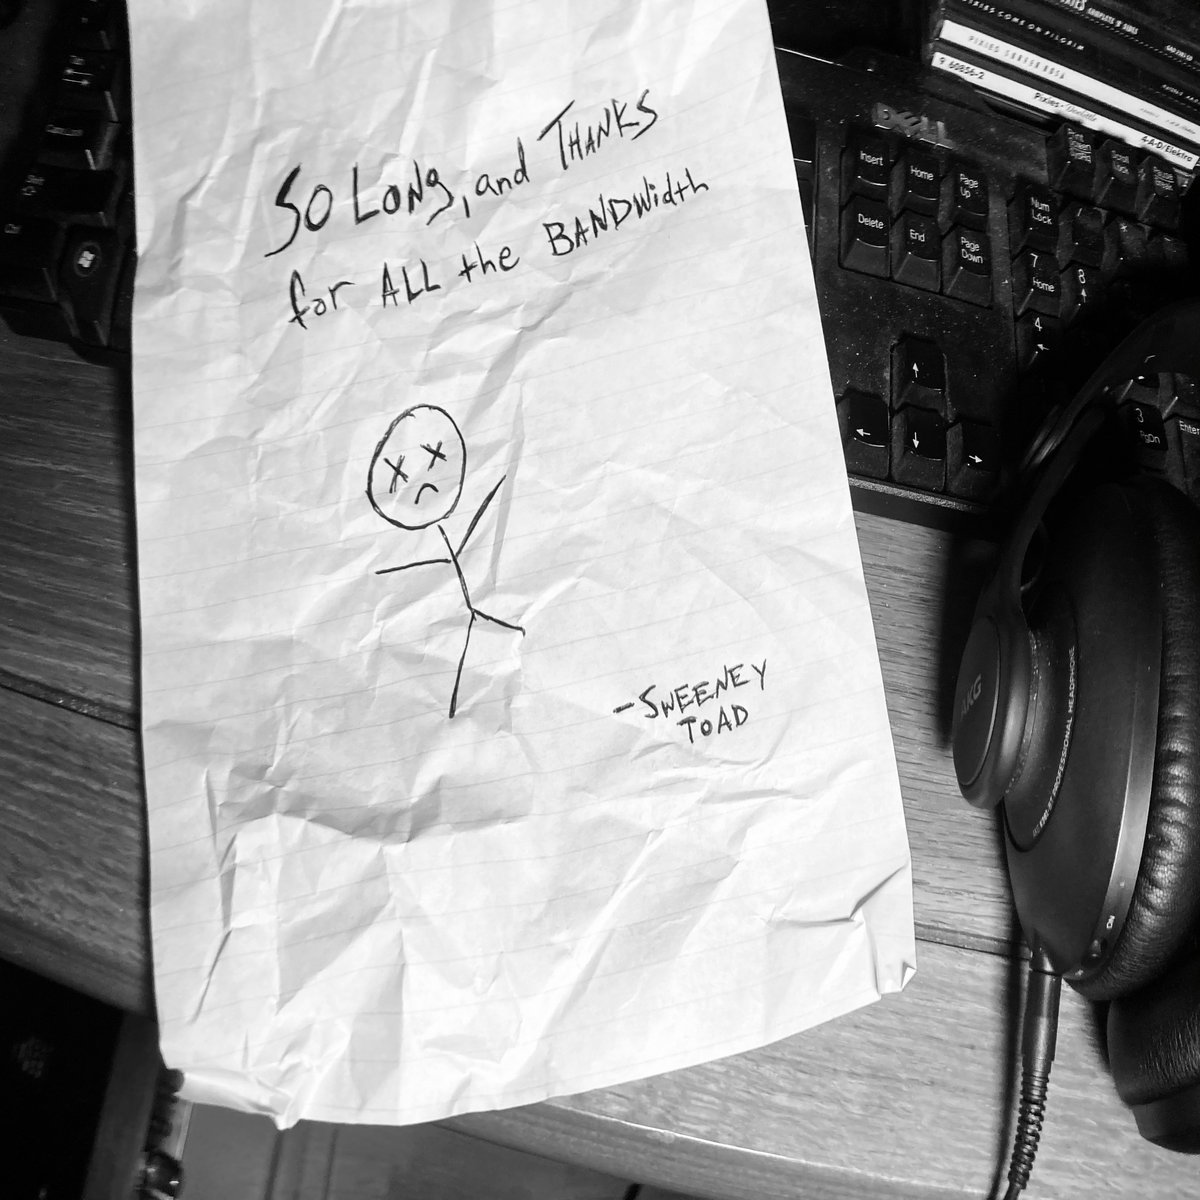 So Long, and THANKS
for ALL the BANDWidth
- SWEENEY
TOAD
PIXIES COME ON PILGRIM
PIXIES SURFER ROSA
9 60856-2
Pixies • Doolittle
4-A-D/Elektra
DELL
Insert
Home
Page Up
Delete
End
Page Down
Print Screen
SysRq
Scroll Lock
Pause
Break
Num Lock
/
*
7
Home
8
↑
4
←
↑
←
↓
→
3
PgDn
Enter
Ctrl
AKG
PROFESSIONAL HEADPHONE